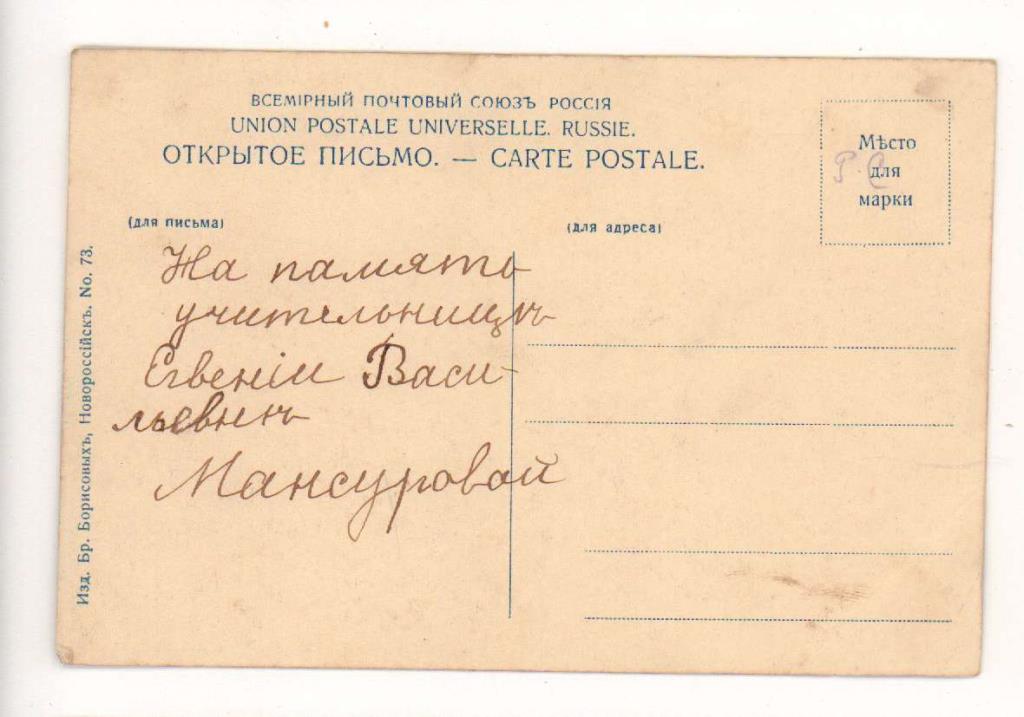 ВСЕМІРНЫЙ ПОЧТОВЫЙ СОЮЗЪ РОССІЯ
UNION POSTALE UNIVERSELLE. RUSSIE.
ОТКРЫТОЕ ПИСЬМО. — CARTE POSTALE.
Мѣсто
для
марки
Р.С
(для письма)
(для адреса)
На память
учительницѣ
Евгеніи Васи-
льевнѣ
Мансуровой
Изд. Бр. Борисовыхъ, Новороссійскъ. No. 73.